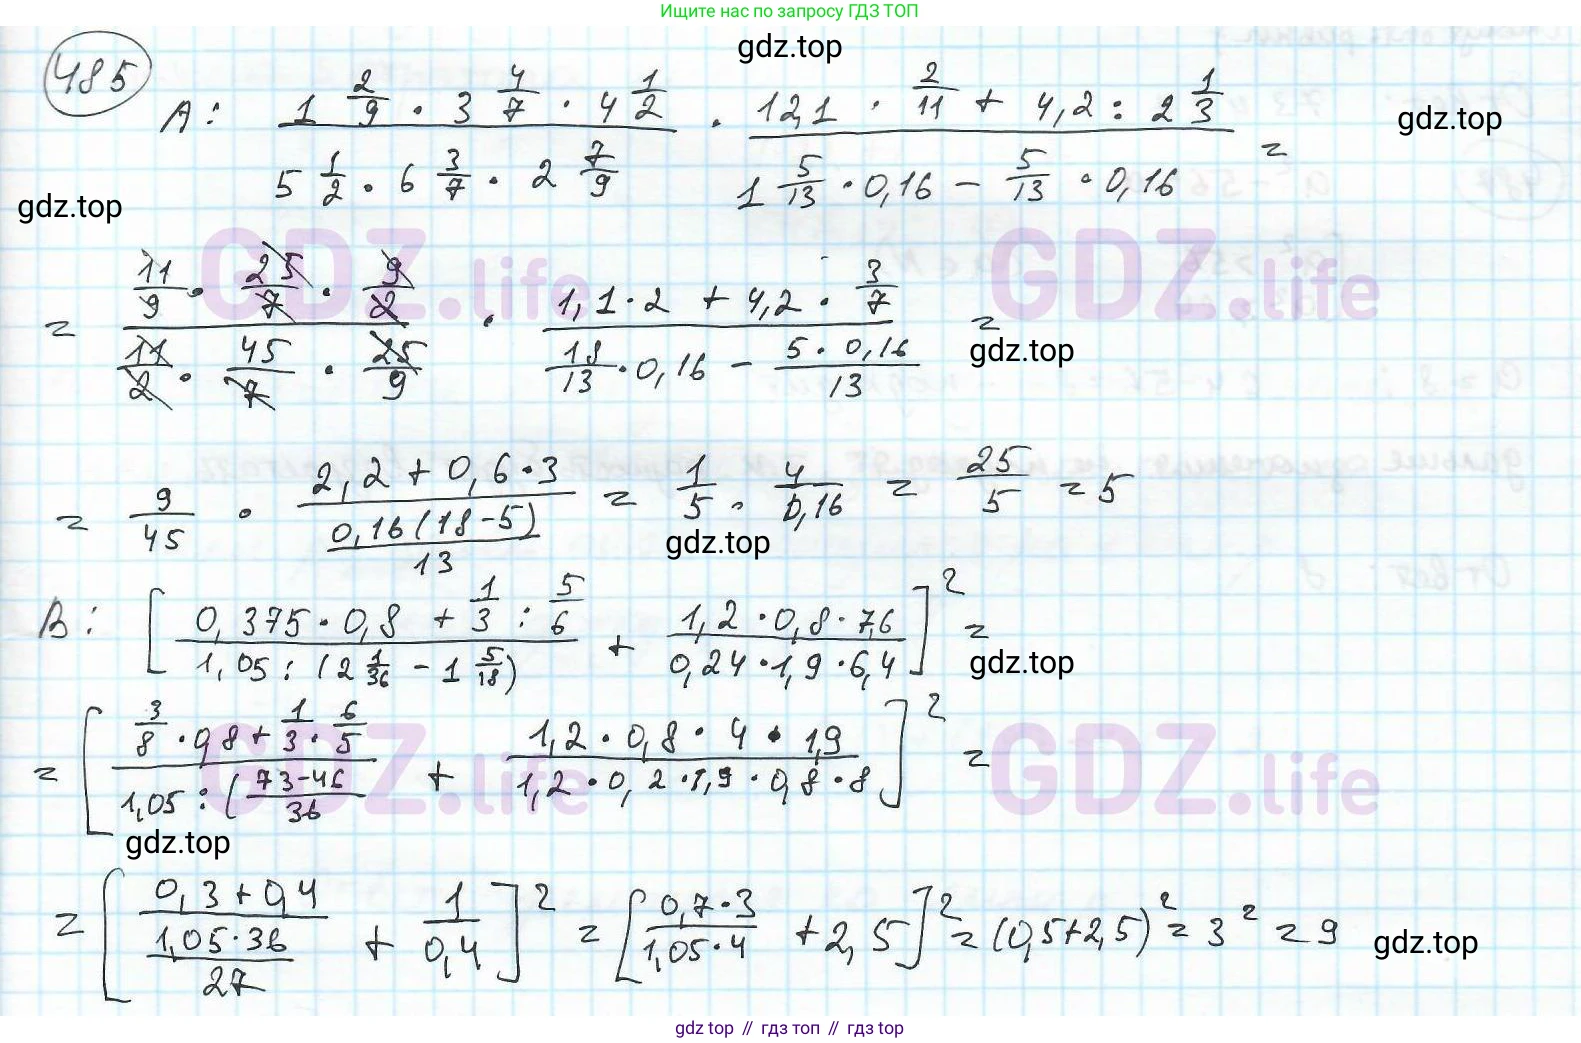 Ищите нас по запросу ГДЗ ТОП
gdz.top
485
A: (1 2/9 · 3 4/7 · 4 1/2)/(5 1/2 · 6 3/7 · 2 7/9) · (12,1 · 2/11 + 4,2 : 2 1/3)/(1 5/13 · 0,16 − 5/13 · 0,16) =
gdz.top
gdz.top
GDZ.life GDZ.life
= (11/9 · 25/7 · 9/2)/(11/2 · 45/7 · 25/9) · (1,1 · 2 + 4,2 · 3/7)/(18/13 · 0,16 − (5 · 0,16)/13) =
gdz.top
= 9/45 · (2,2 + 0,6 · 3)/(0,16(18−5)/13) = 1/5 · 4/0,16 = 25/5 = 5
gdz.top
B: [(0,375 · 0,8 + 1/3 : 5/6)/(1,05 : (2 1/36 − 1 5/18)) + (1,2 · 0,8 · 7,6)/(0,24 · 1,9 · 6,4)]² =
gdz.top
GDZ.life GDZ.life
= [(3/8 · 0,8 + 1/3 · 6/5)/(1,05 : ((73−46)/36) + (1,2 · 0,8 · 4 · 1,9)/(1,2 · 0,2 · 1,9 · 0,8 · 8)]² =
gdz.top
= [(0,3 + 0,4)/((1,05 · 36)/27) + 1/0,4]² = [(0,7 · 3)/(1,05 · 4) + 2,5]² = (0,5+2,5)² = 3² = 9
gdz.top
gdz top // гдз топ // гдз top